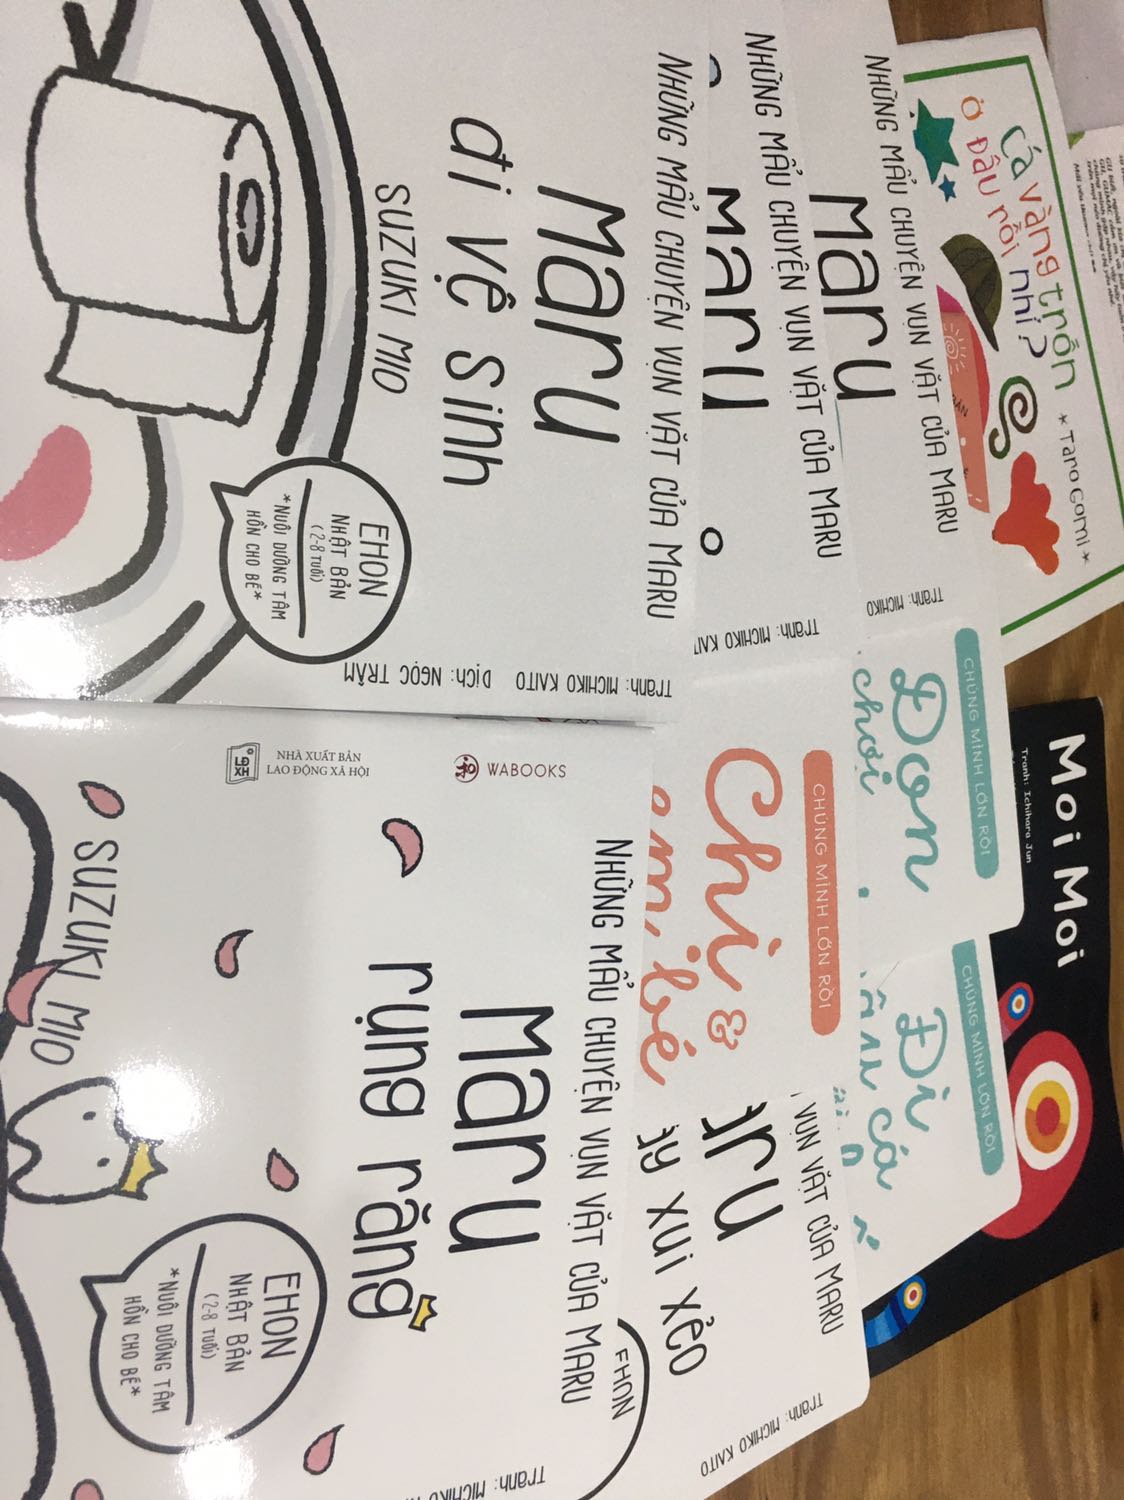 NHỮNG MẨU CHUYỆN VỤN VẶT CỦA MARU
Maru
đi vệ sinh
SUZUKI MIO
EHON
NHẬT BẢN
(2-8 TUỔI)
*NUÔI DƯỠNG TÂM
HỒN CHO BÉ*
Tranh: MICHIKO KAITO Dịch: NGỌC TRÂM
NHỮNG MẨU CHUYỆN VỤN VẶT CỦA MARU
Maru
Tranh: MICHIKO KAITO
NHỮNG MẨU CHUYỆN VỤN VẶT CỦA MARU
Maru
Tranh: MICHIKO
Cá vàng trốn
ở đâu rồi nhỉ?
*Taro Gomi*
NHÀ XUẤT BẢN
LAO ĐỘNG XÃ HỘI
LĐ
XH
WABOOKS
NHỮNG MẨU CHUYỆN VỤN VẶT CỦA MARU
Maru
rụng răng
SUZUKI MIO
EHON
NHẬT BẢN
(2-8 TUỔI)
*NUÔI DƯỠNG TÂM
HỒN CHO BÉ*
Tranh: MICHIKO
CHÚNG MÌNH LỚN RỒI
Chị &
em bé
VỤN VẶT CỦA MARU
aru
ay xui xẻo
EHON
Tranh: MICHIKO KAITO
CHÚNG MÌNH LỚN RỒI
Dọn
chơi
CHÚNG MÌNH LỚN RỒI
Đi
câu cá
Moi Moi
Tranh: Ichihara Jun